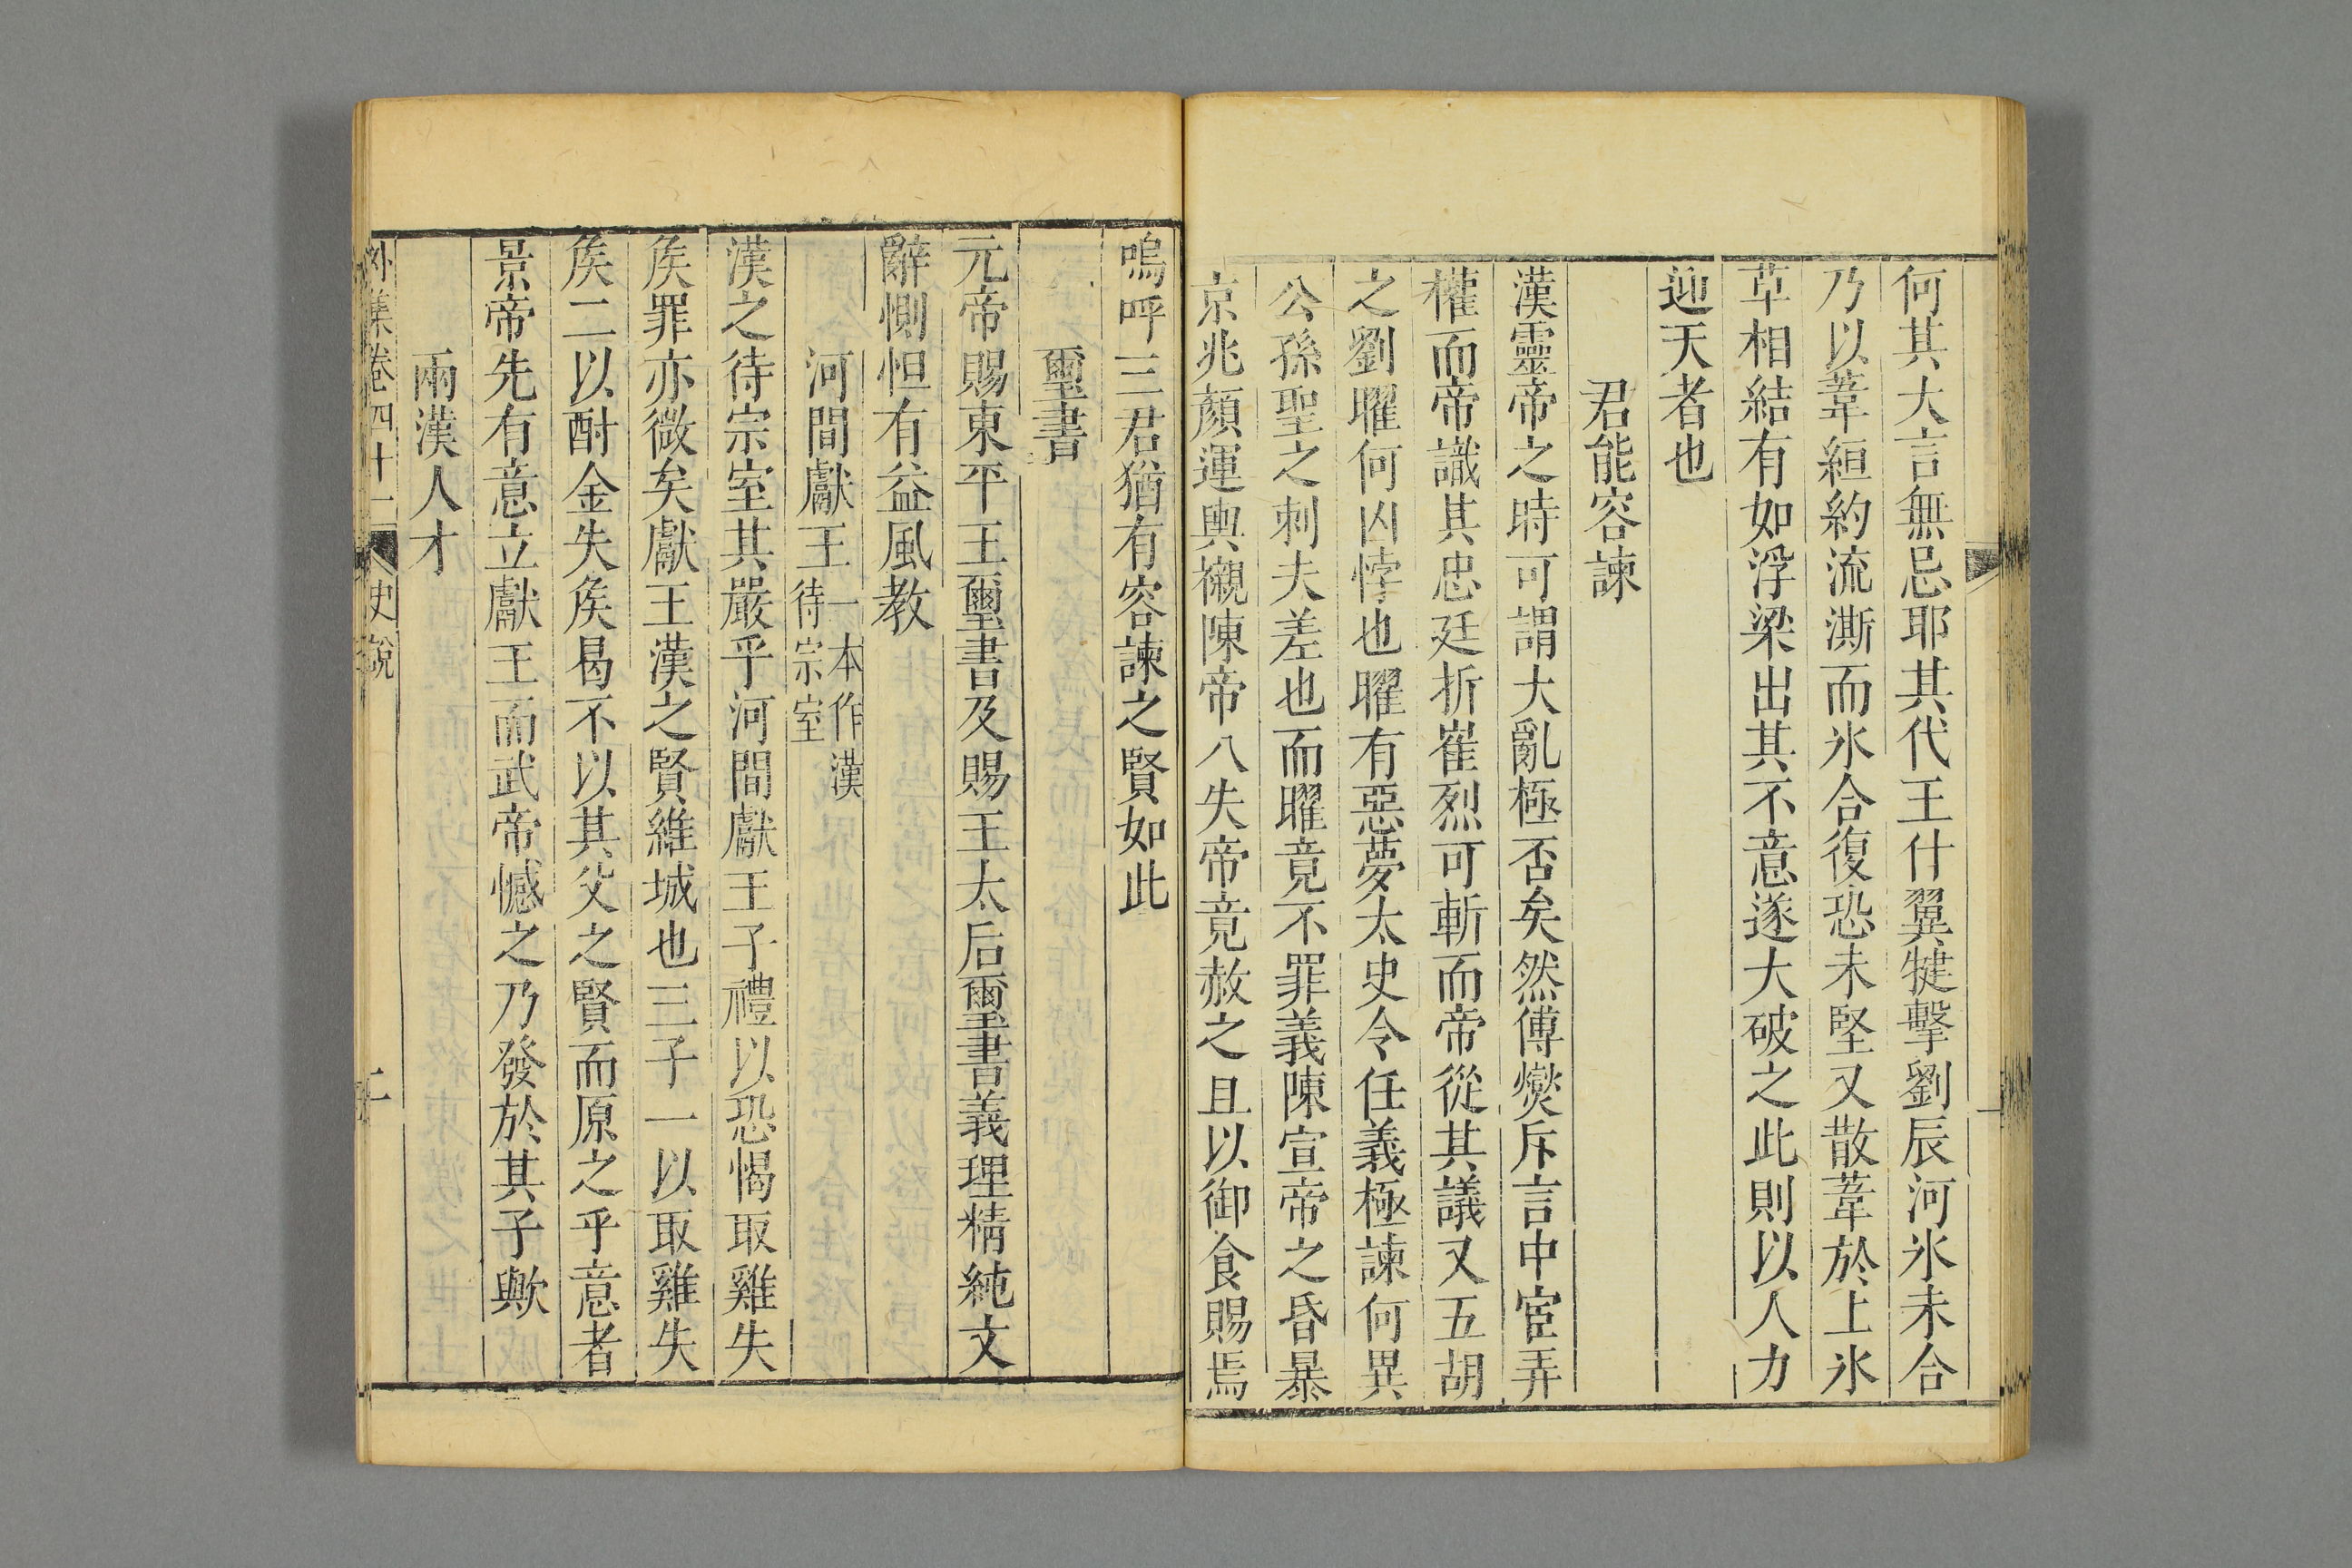 何其大言無忌耶其代王什翼犍擊劉辰河氷未合
乃以葦絙約流澌而氷合復恐未堅又散葦於上氷
草相結有如浮梁出其不意遂大破之此則以人力
迎天者也
君能容諫
漢靈帝之時可謂大亂極否矣然傅燮斥言中宦弄
權而帝識其忠廷折崔烈可斬而帝從其議又五胡
之劉曜何凶悖也曜有惡夢太史令任義極諫何異
公孫聖之刺夫差也而曜竟不罪義陳宣帝之昏暴
京兆顔運輿襯陳帝八失帝竟赦之且以御食賜焉
嗚呼三君猶有容諫之賢如此
璽書
元帝賜東平王璽書及賜王太后璽書義理精純文
辭惻怛有益風教
河間獻王一本作漢待宗室
漢之待宗室其嚴乎河間獻王子禮以恐愒取雞失
矦罪亦微矣獻王漢之賢維城也三子一以取雞失
矦二以酎金失矦曷不以其父之賢而原之乎意者
景帝先有意立獻王而武帝憾之乃發於其子歟
兩漢人才
外集卷四十一 史說 二